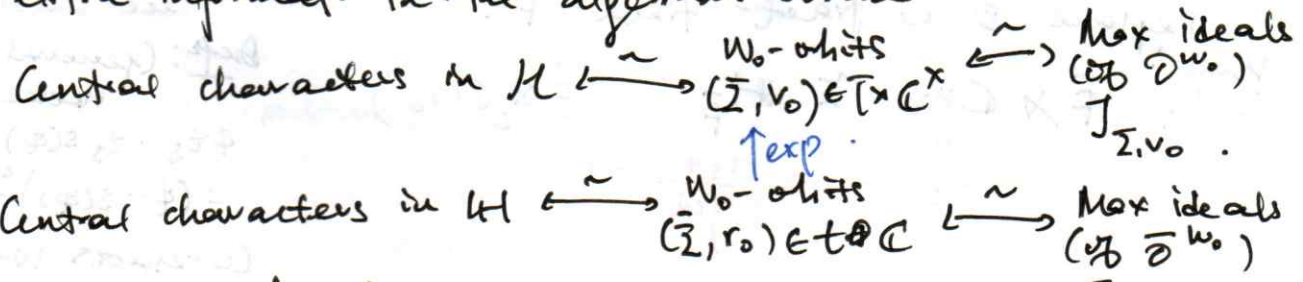 Central characters in H ⟷~ W₀-orbits (Σ̄, v₀) ∈ T × C^× ⟷~ Max ideals (of O^{W₀}) J_{Σ,v₀}.
↑exp.
Central characters in ℍ ⟷~ W₀-orbits (Σ̄, r₀) ∈ t ⊕ C ⟷~ Max ideals (of Ō^{W₀})